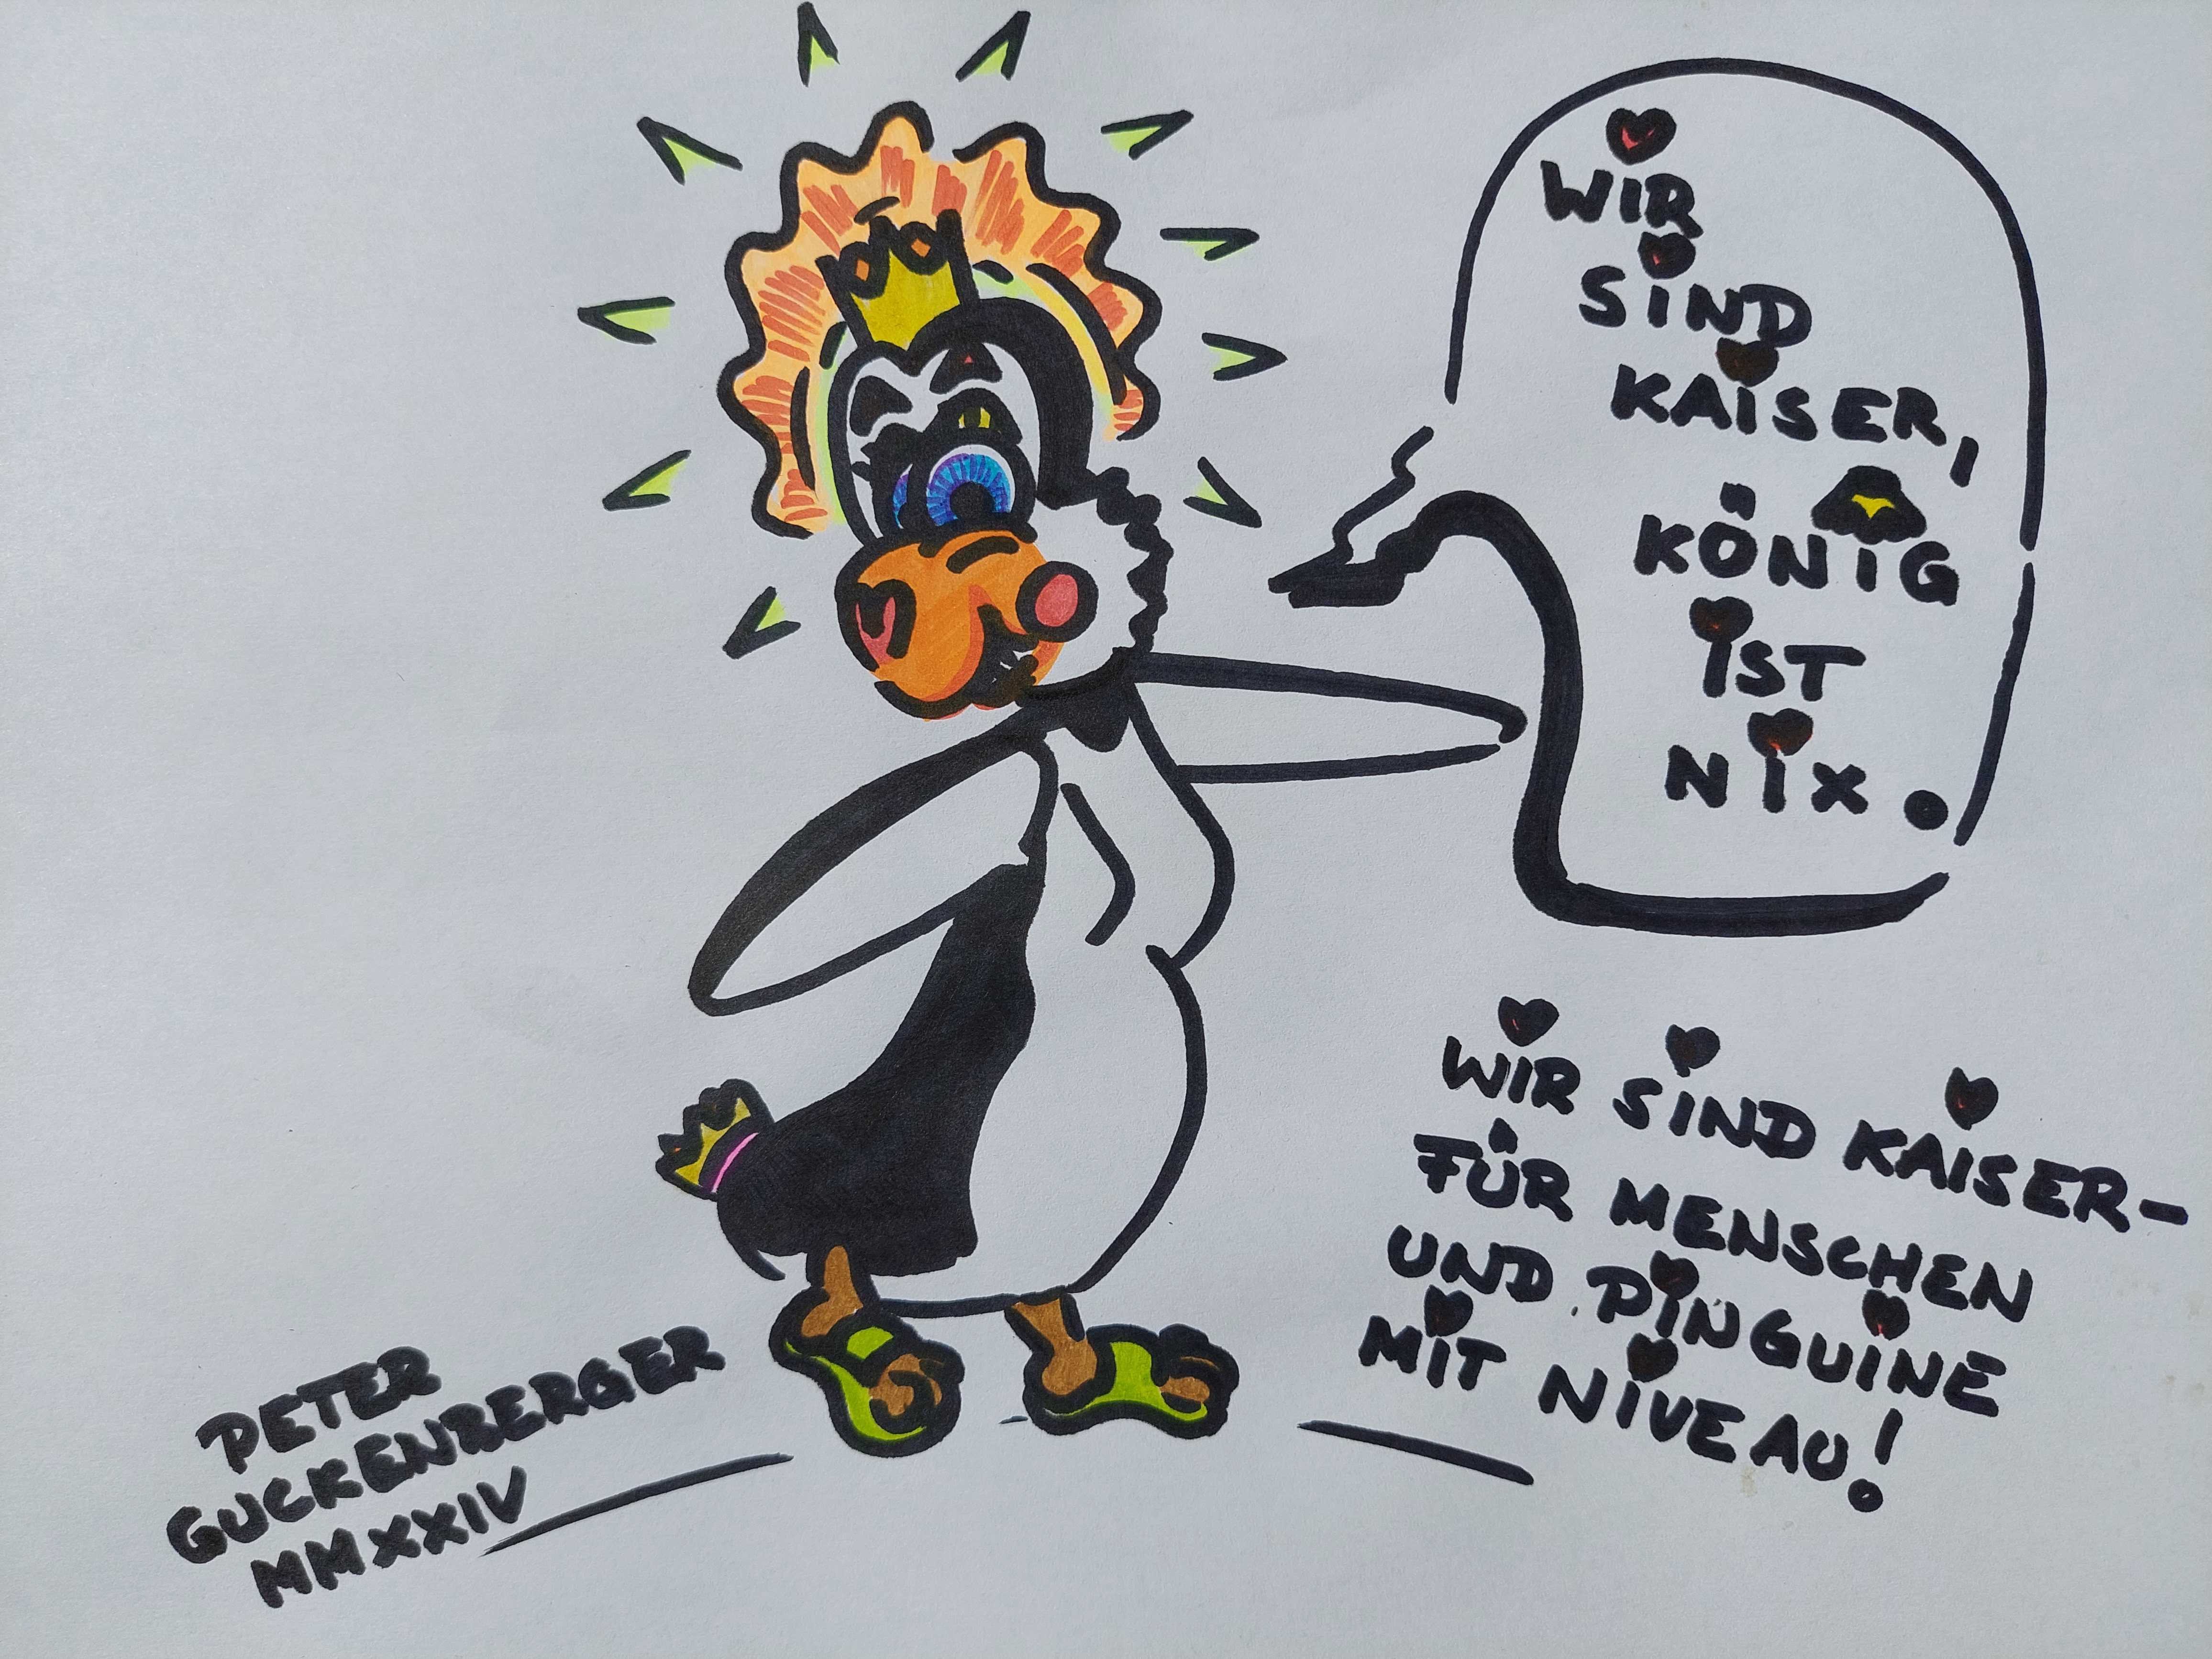 WIR
SIND
KAISER,
KÖNIG
IST
NIX.
WIR SIND KAISER-
FÜR MENSCHEN
UND PINGUINE
MIT NIVEAU!
PETER
GUCKENBERGER
MMXXIV